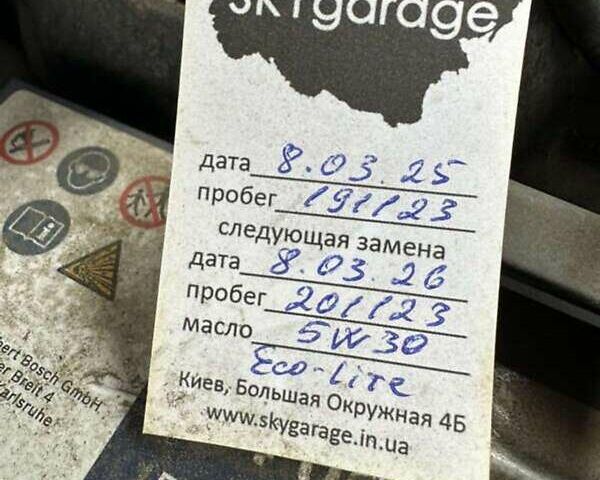 SKYgarage
дата 8.03.25
пробег 191123
следующая замена
дата 8.03.26
пробег 201123
масло 5W30
Eco-Lite
Киев, Большая Окружная 4Б
www.skygarage.in.ua
bert Bosch GmbH
er Breit 4
Karlsruhe